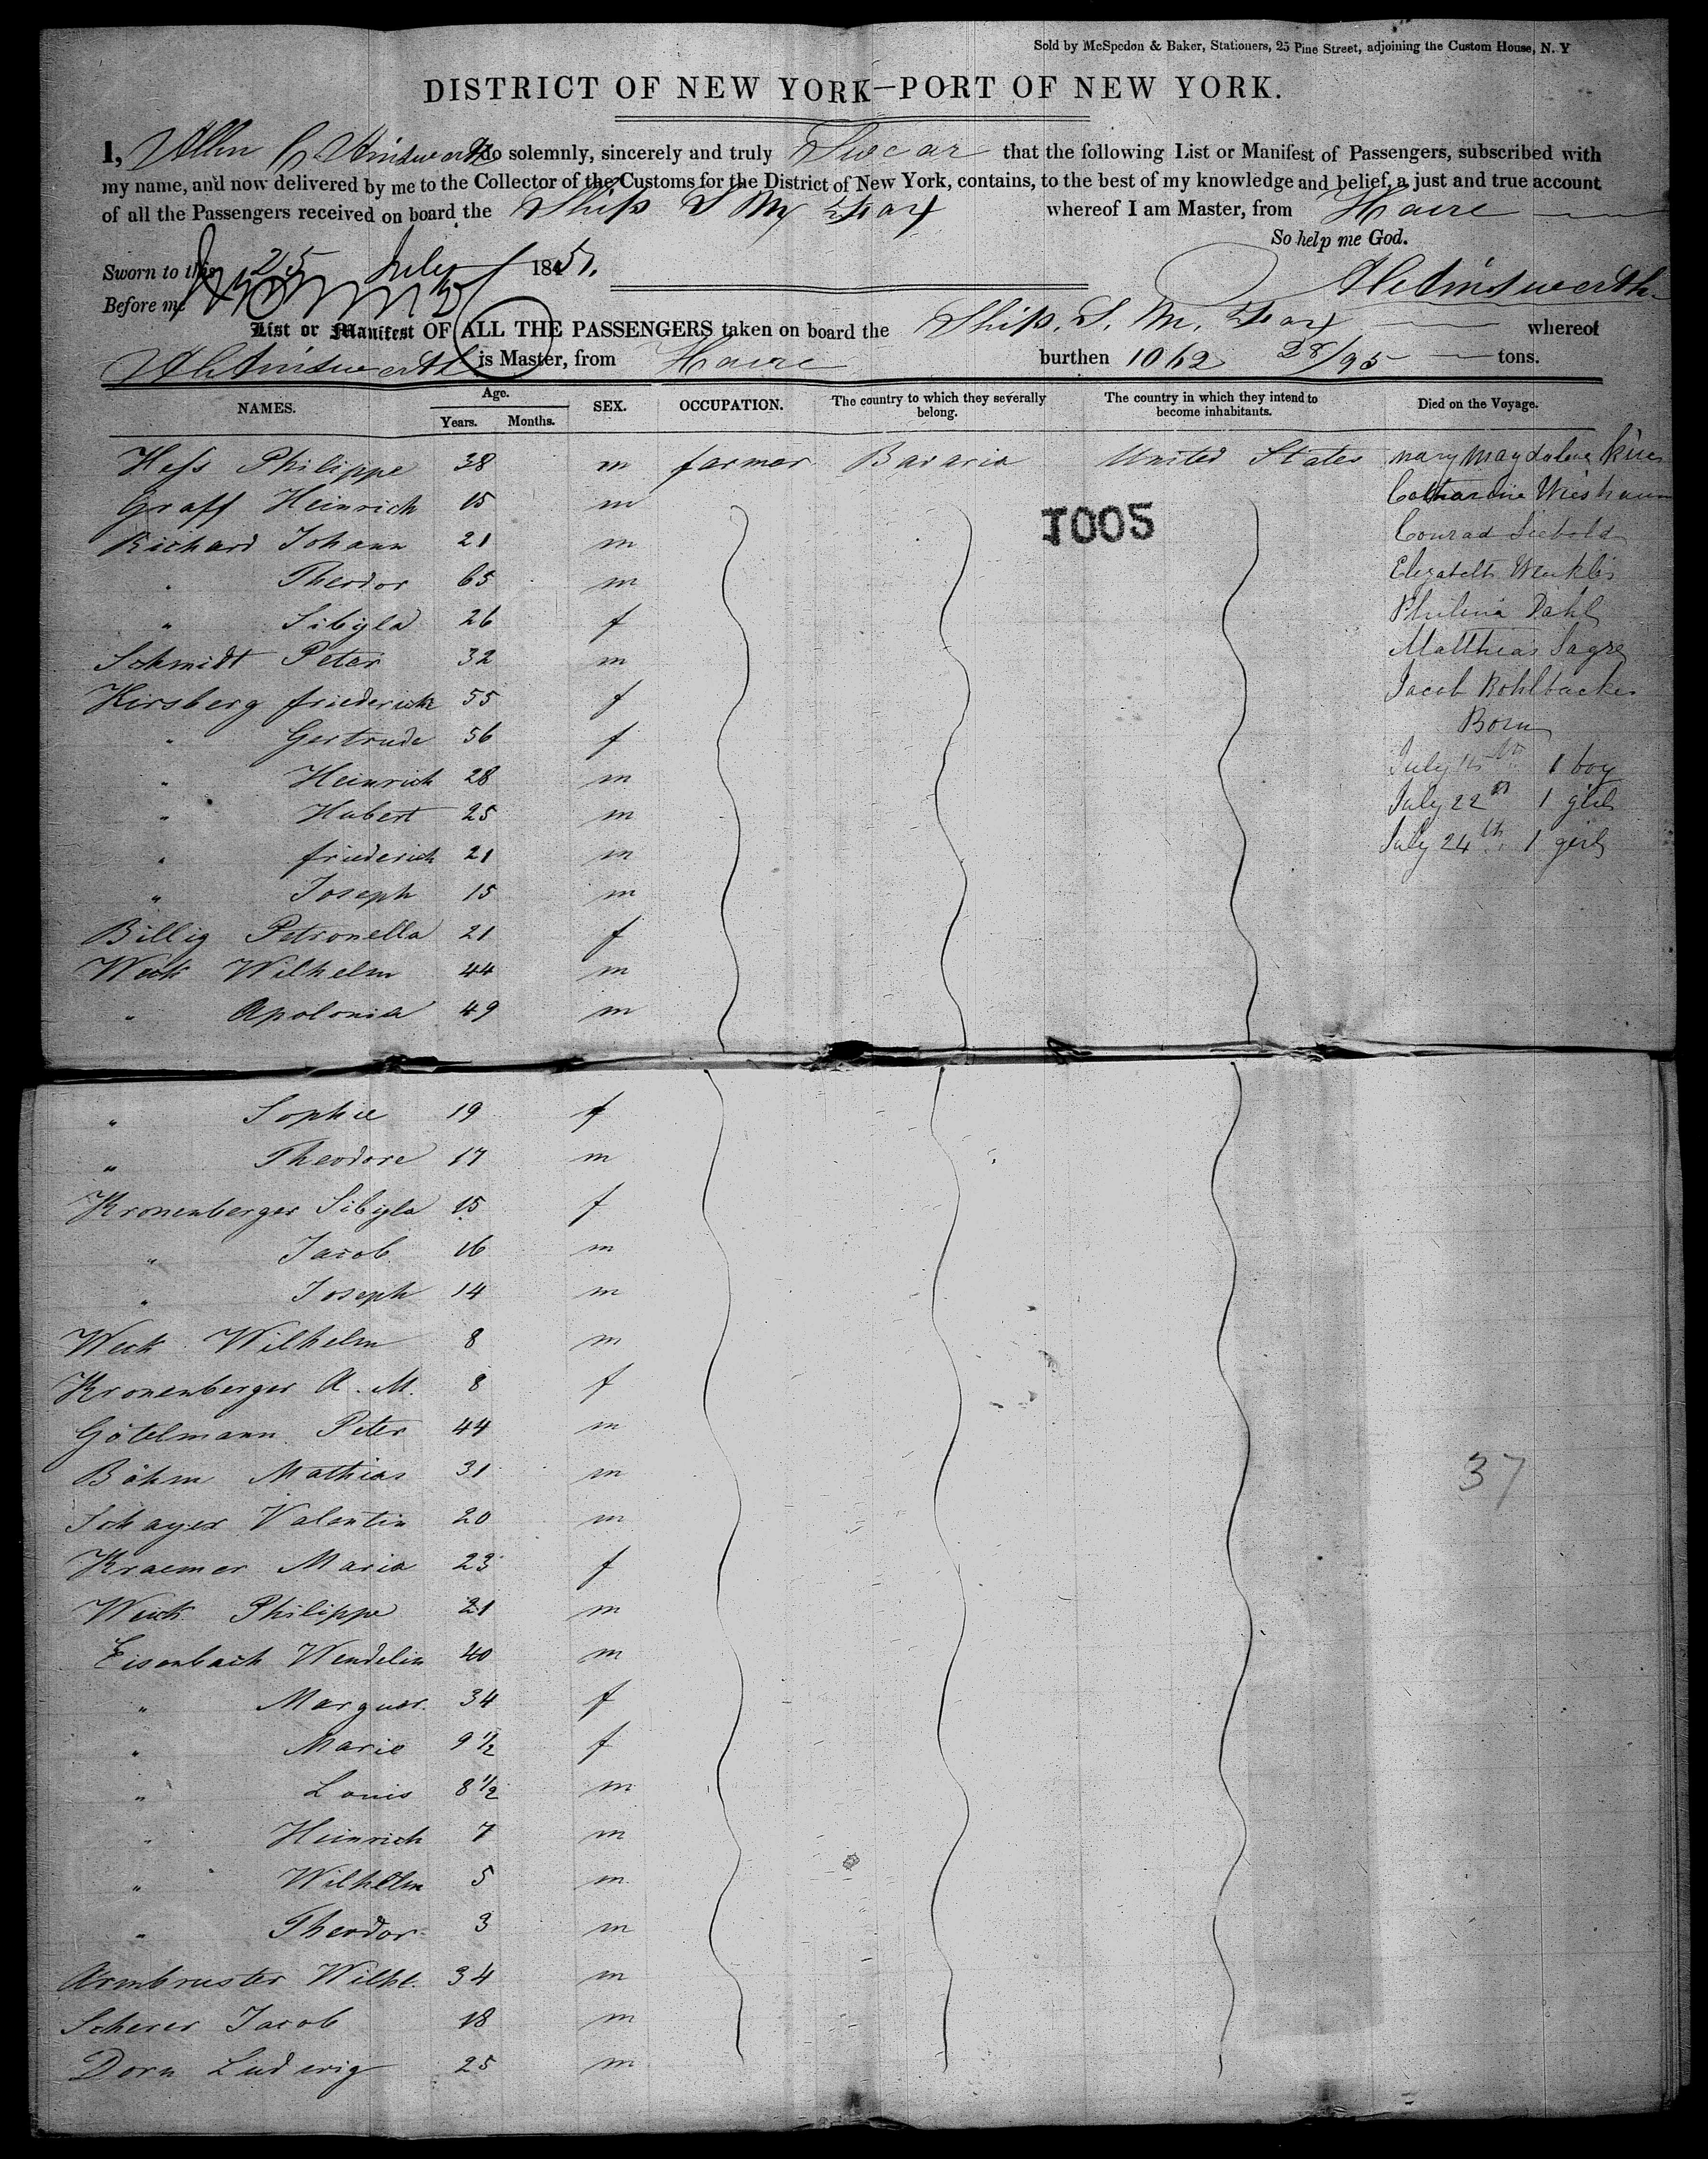 Sold by McSpedon & Baker, Stationers, 25 Pine Street, adjoining the Custom House, N. Y
DISTRICT OF NEW YORK—PORT OF NEW YORK.
I, Allen C Ainsworth do solemnly, sincerely and truly Swear that the following List or Manifest of Passengers, subscribed with
my name, and now delivered by me to the Collector of the Customs for the District of New York, contains, to the best of my knowledge and belief, a just and true account
of all the Passengers received on board the Ship S M Fox whereof I am Master, from Havre
So help me God.
Sworn to this 25 July 1851.
A C Ainsworth
Before me
List or Manifest OF ALL THE PASSENGERS taken on board the Ship. S. M. Fox whereof
A C Ainsworth is Master, from Havre burthen 1062 28/95 tons.
NAMES. Age. Years. Months. SEX. OCCUPATION. The country to which they severally belong. The country in which they intend to become inhabitants. Died on the Voyage.
Hess Philippe 38 m farmer Bavaria United States Mary Magdalena
Graff Heinrich 15 m Catharine
1005
Richard Johann 21 m Conrad Siebold
" Theodor 65 m Elizabeth
" Sibyla 26 f Philina Dahl
Schmidt Peter 32 m Matthias
Hirsberg friederich 55 f Jacob Kohlbacker
" Gertrude 56 f Born
" Heinrich 28 m July 15th 1 boy
" Hubert 25 m July 22n 1 girl
" friederich 21 m July 24th 1 girl
" Joseph 15 m
Billig Petronella 21 f
Weck Wilhelm 44 m
" Apolonia 49 m
" Sophie 19 f
" Theodore 17 m
Kronenberger Sibyla 15 f
" Jacob 16 m
" Joseph 14 m
Weck Wilhelm 8 m
Kronenberger A. M. 8 f
Götelmann Peter 44 m
Böhm Mathias 31 m
37
Schayer Valantin 20 m
Kraemer Maria 23 f
Weick Philippe 21 m
Eisenbach Wendelin 40 m
" Marguer. 34 f
" Marie 9 1/2 f
" Louis 8 1/2 m
" Heinrich 7 m
" Wilhelm 5 m
" Theodor 3 m
Armbruster Wilhl. 34 m
Scherer Jacob 18 m
Dorn Ludwig 25 m